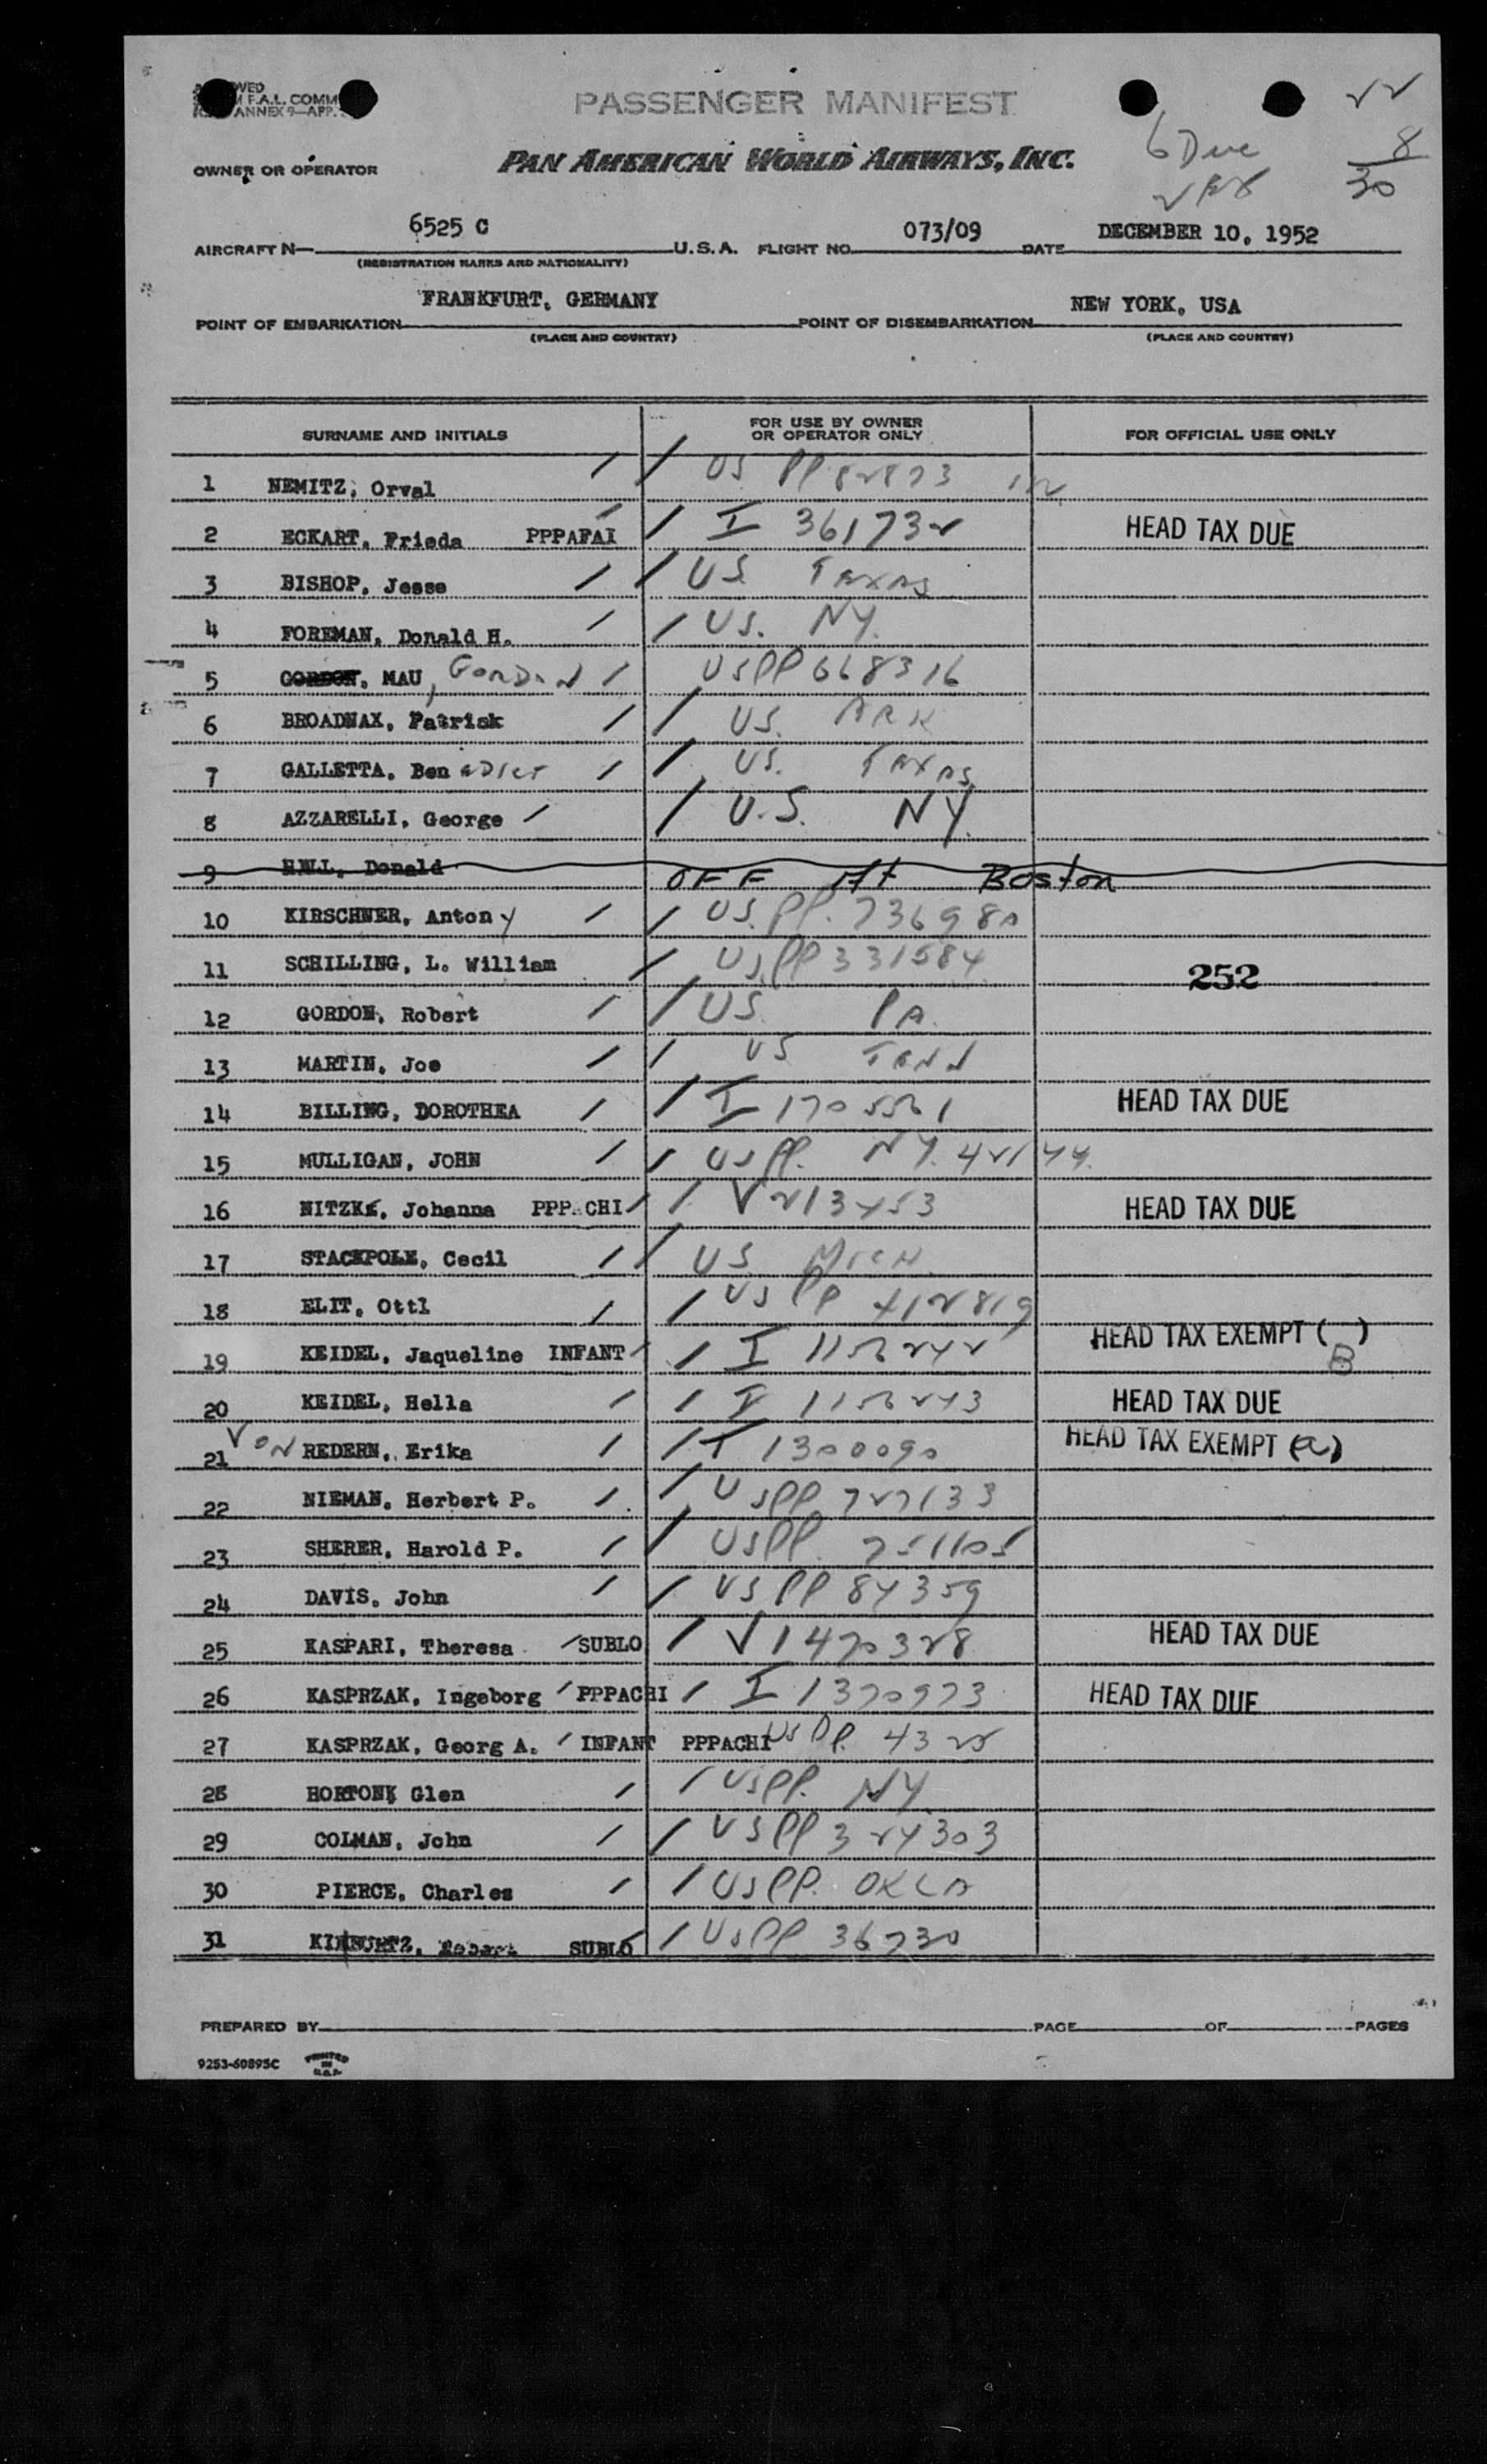 PASSENGER MANIFEST
F.A.L. COMM
ANNEX 9—APP.
22
8
30
6 Due
OWNER OR OPERATOR PAN AMERICAN WORLD AIRWAYS, INC.
AIRCRAFT N— 6525 C U.S.A. FLIGHT NO. 073/09 DATE DECEMBER 10, 1952
(REGISTRATION MARKS AND NATIONALITY)
POINT OF EMBARKATION FRANKFURT, GERMANY POINT OF DISEMBARKATION NEW YORK, USA
(PLACE AND COUNTRY) (PLACE AND COUNTRY)
SURNAME AND INITIALS FOR USE BY OWNER OR OPERATOR ONLY FOR OFFICIAL USE ONLY
1 NEMITZ, Orval / / US PP 82873
2 ECKART, Frieda PPPAFAI / / I 361732 HEAD TAX DUE
3 BISHOP, Jesse / / US TEXAS
4 FOREMAN, Donald H. / / US. NY.
5 GORDON, MAU, GORDON / USPP 668316
6 BROADNAX, Patrick / / US. ARK
7 GALLETTA, Ben edict / / US. TEXAS
8 AZZARELLI, George / / U.S. NY.
9 HALL, Donald OFF At Boston
10 KIRSCHNER, Anton y / / US. PP. 736980
11 SCHILLING, L. William / US. PP 331584
252
12 GORDON, Robert / / US PA.
13 MARTIN, Joe / / US TENN
14 BILLING, DOROTHEA / / I 1705561 HEAD TAX DUE
15 MULLIGAN, JOHN / / US PP. NY. 421744
16 NITZKE, Johanna PPPACHI / / V 213453 HEAD TAX DUE
17 STACKPOLE, Cecil / / US MICH.
18 ELIT, Ottl / / US PP 412819
19 KEIDEL, Jaqueline INFANT / / I 1156242 HEAD TAX EXEMPT ( ) B
20 KEIDEL, Hella / / I 1156243 HEAD TAX DUE
21 VON REDERN, Erika / / I 1300090 HEAD TAX EXEMPT (a)
22 NIEMAN, Herbert P. / / USPP 727133
23 SHERER, Harold P. / / USPP. 751105
24 DAVIS, John / / US PP 84359
25 KASPARI, Theresa / SUBLO / V 1470328 HEAD TAX DUE
26 KASPRZAK, Ingeborg / PPPACHI / I 1370973 HEAD TAX DUE
27 KASPRZAK, Georg A. / INFANT PPPACHI US PP. 4325
28 HORTON, Glen / / USPP. NY.
29 COLMAN, John / / USPP 324303
30 PIERCE, Charles / / USPP. OKLA
31 Robert SUBLO / / USPP 36730
PREPARED BY PAGE OF PAGES
9253-60895C PRINTED IN U.S.A.